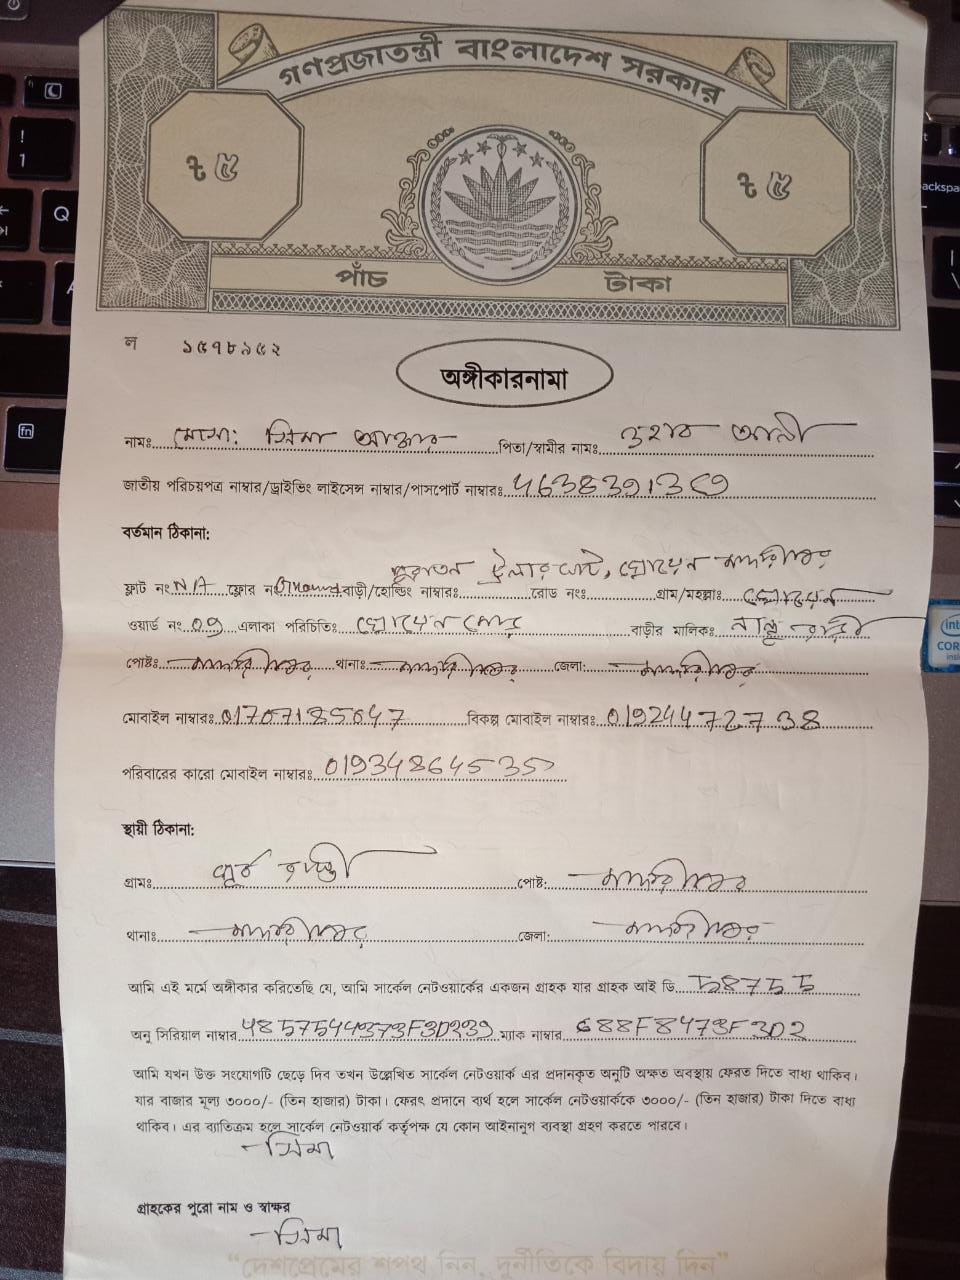 গণপ্রজাতন্ত্রী বাংলাদেশ সরকার
৳ ৫ ৳ ৫
পাঁচ টাকা
ল ১৫৭৮৯৫২
অঙ্গীকারনামা
নামঃ মোসা: সিমা আক্তার পিতা/স্বামীর নামঃ আলী
জাতীয় পরিচয়পত্র নাম্বার/ড্রাইভিং লাইসেন্স নাম্বার/পাসপোর্ট নাম্বারঃ
বর্তমান ঠিকানা:
পুরাতন
ফ্লাট নং N/A ফ্লোর নং Ground বাড়ী/হোল্ডিং নাম্বারঃ রোড নংঃ গ্রাম/মহল্লাঃ
ওয়ার্ড নং 09 এলাকা পরিচিতিঃ বাড়ীর মালিকঃ
পোষ্টঃ থানাঃ জেলা:
মোবাইল নাম্বারঃ 01707185647 বিকল্প মোবাইল নাম্বারঃ 01924472738
পরিবারের কারো মোবাইল নাম্বারঃ 01934864535
স্থায়ী ঠিকানা:
গ্রামঃ পূর্ব পোষ্ট:
থানাঃ জেলা:
আমি এই মর্মে অঙ্গীকার করিতেছি যে, আমি সার্কেল নেটওয়ার্কের একজন গ্রাহক যার গ্রাহক আই ডি 58755
অনু সিরিয়াল নাম্বার 485754449373F3D239 ম্যাক নাম্বার 688F8473F3D2
আমি যখন উক্ত সংযোগটি ছেড়ে দিব তখন উল্লেখিত সার্কেল নেটওয়ার্ক এর প্রদানকৃত অনুটি অক্ষত অবস্থায় ফেরত দিতে বাধ্য থাকিব।
যার বাজার মূল্য ৩০০০/- (তিন হাজার) টাকা। ফেরৎ প্রদানে ব্যর্থ হলে সার্কেল নেটওয়ার্ককে ৩০০০/- (তিন হাজার) টাকা দিতে বাধ্য
থাকিব। এর ব্যতিক্রম হলে সার্কেল নেটওয়ার্ক কর্তৃপক্ষ যে কোন আইনানুগ ব্যবস্থা গ্রহণ করতে পারবে।
সিমা
গ্রাহকের পুরো নাম ও স্বাক্ষর
সিমা
“দেশপ্রেমের শপথ নিন, দুর্নীতিকে বিদায় দিন”